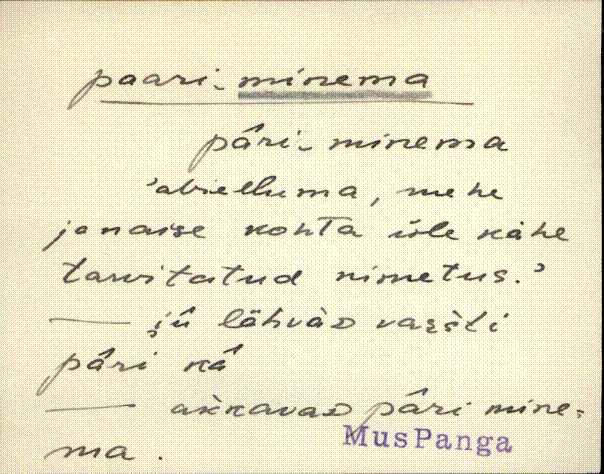 paari-minema
pâri-minema
'abielluma, mehe
ja naise kohta üle kahe
tarvitatud nimetus.'
lähvàD varšti
pâri kâ
akkavaD pâri mine-
ma.
MusPanga